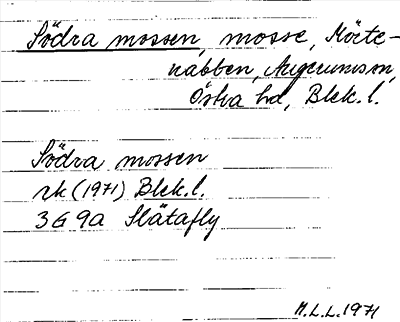 Södra mossen, mosse, Mörte-
nabben, Augerums sn,
Östra hd, Blek. l.
Södra mossen
rk (1971) Blek. l.
3G 9a Slätafly
M.L.L. 1971